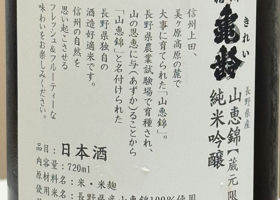 信州
亀齢
きれい
長野県産
山恵錦 【蔵元限
純米吟醸
信州上田、
美ヶ高原の麓で
大事に育てられた「山恵錦」。
長野県農業試験場で育種され、
山の恩恵に与(あずか)ることから
「山恵錦」と名付けられた
長野県独自の
酒造好適米です。
信州の自然を
思い起こさせる
フレッシュ&フルーティーな
味わいをお楽しみください。
品目:日本酒
内容量:720ml
原材料名:米・米麹
使用米:長野県産山恵錦100%使用